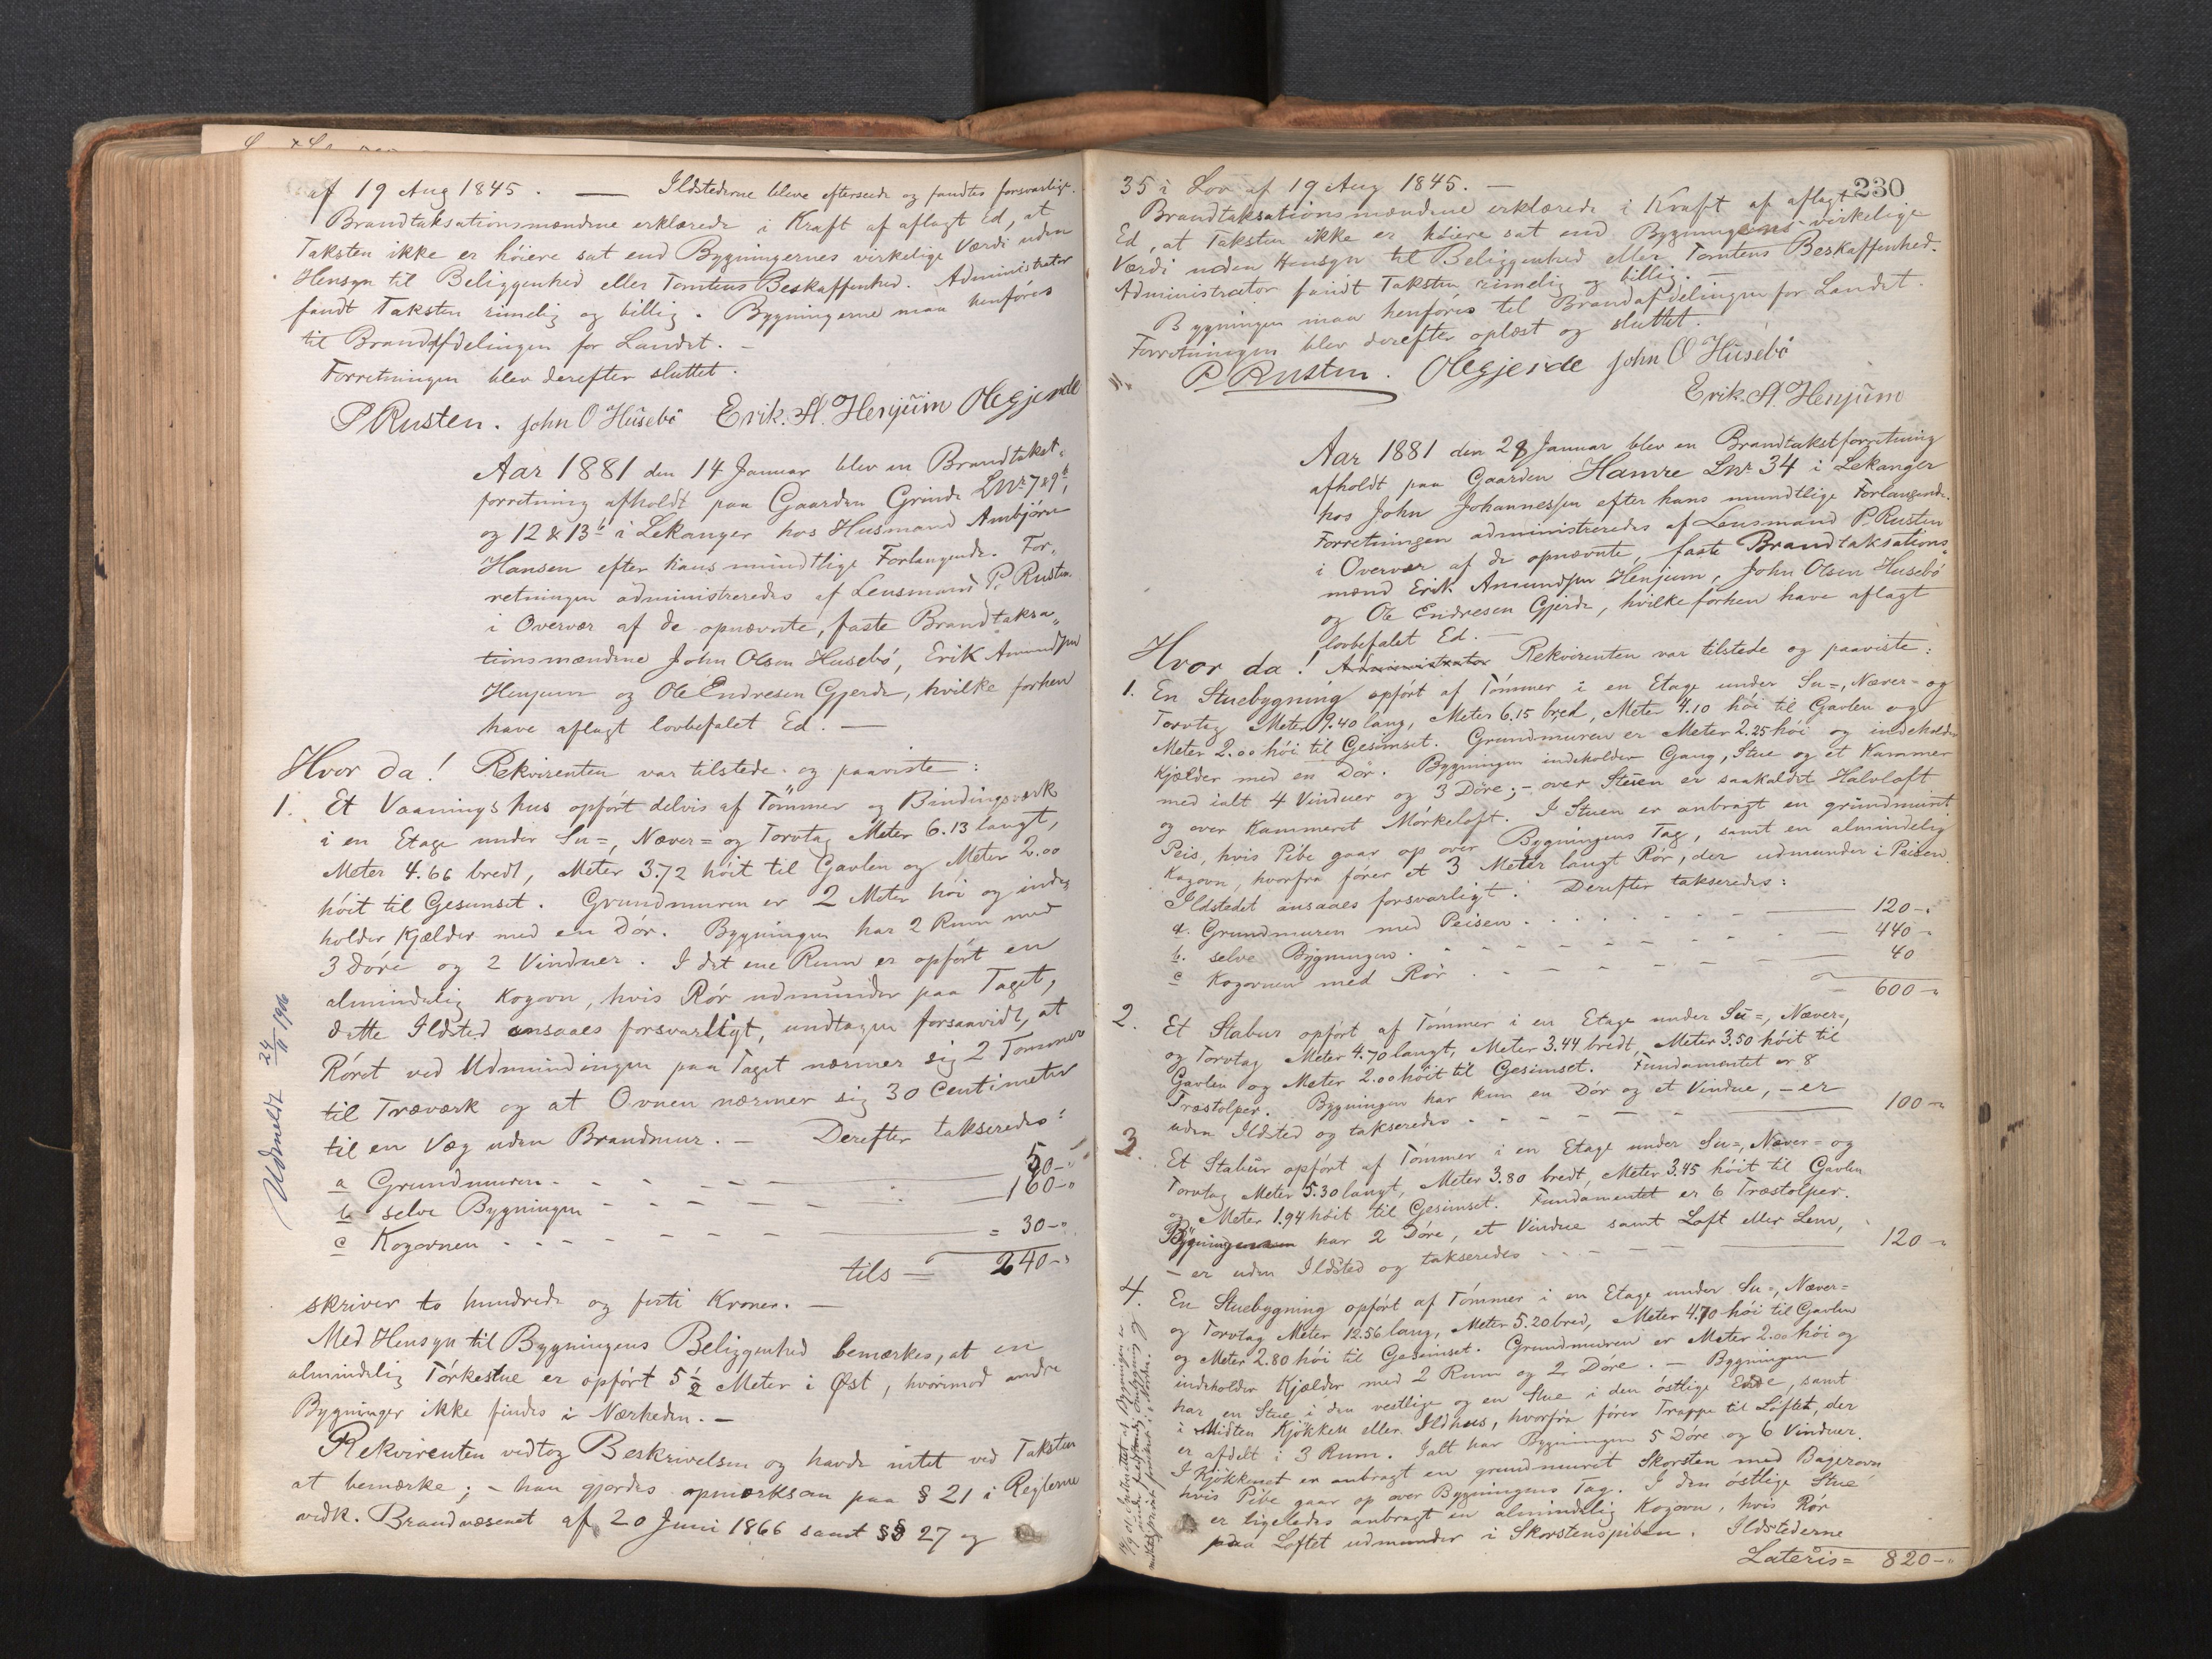 af 19 Aug 1845. — Ildstederne bleve efterseede og fandtes forsvarlige.
Brandtaksationsmændene erklærede i Kraft af aflagt Ed, at
Taksten ikke er høiere sat end Bygningernes virkelige Værdi uden
Hensyn til Beliggenhed eller Tomtens Beskaffenhed. Administrator
fandt Taksten rimelig og billig. Bygningerne maa henføres
til Brandafdelingen for Landet. —
Forretningen blev derefter sluttet.
P Rusten. John O Husebø Erik. A. Henjum Ole Gjerde
Aar 1881 den 14 Januar blev en Brandtakst-
forretning afholdt paa Gaarden Grinde LNr 7 & 9 b,
og 12 & 13 b i Lekanger hos Husmand Ambjørn
Hansen efter hans mundtlige Forlangende. For-
retningen administreredes af Lensmand P. Rusten
i Overvær af de opnævnte, faste Brandtaksa-
tionsmændene John Olsen Husebø, Erik Amundsen
Henjum og Ole Endresen Gjerde, hvilke forhen
have aflagt lovbefalet Ed. —
Hvor da! Rekvirenten var tilstede og paaviste:
1. Et Vaaningshus opført delvis af Tømmer og Bindingsværk
i en Etage under Su=, Næver= og Torvtag Meter 6.13 langt,
Meter 4.66 bredt, Meter 3.72 høit til Gavlen og Meter 2.00
høit til Gesimset. Grundmuren er 2 Meter høi og inde-
holder Kjælder med en Dør. Bygningen har 2 Rum med
3 Døre og 2 Vinduer. I det ene Rum er opført en
almindelig Kogovn, hvis Rør udmunder paa Taget,
dette Ildsted ansaaes forsvarligt, undtagen forsaavidt, at
Røret ved Udmundingen paa Taget nærmer sig 2 Tommer
til Træværk og at Ovnen nærmer sig 30 Centimeter
til en Væg uden Brandmur. — Derefter takseredes:
a Grundmuren 50-"
b selve Bygningen 160-"
c Kogovnen = 30-"
tils = 240-"
skriver to hundrede og førti Kroner. —
Med Hensyn til Bygningens Beliggenhed bemærkes, at en
almindelig Tørkestue er opført 5 1/2 Meter i Øst, hvorimod andre
Bygninger ikke findes i Nærheden. —
Rekvirenten vedtog Beskrivelsen og havde intet ved Taksten
at bemærke; – han gjordes opmærksom paa § 21 i Reglerne
vedk. Brandvæsenet af 20 Juni 1866 samt §§ 27 og
Udmeldt 24/11 1906
230
35 i Lov af 19 Aug 1845. —
Brandtaksationsmændene erklærede i Kraft af aflagt
Ed, at Taksten ikke er høiere sat end Bygningens virkelige
Værdi uden Hensyn til Beliggenhed eller Tomtens Beskaffenhed.
Administrator fandt Taksten rimelig og billig. —
Bygningen maa henføres til Brandafdelingen for Landet.
Forretningen blev derefter oplæst og sluttet.
P Rusten. Ole Gjerde John O Husebø
Erik. A. Henjum
Aar 1881 den 28 Januar blev en Brandtakstforretning
afholdt paa Gaarden Hamre LNr 34 i Lekanger
hos John Johannessen efter hans mundtlige Forlangende.
Forretningen administreredes af Lensmand P. Rusten
i Overvær af de opnævnte, faste Brandtaksations-
mænd Erik Amundsen Henjum, John Olsen Husebø
og Ole Endresen Gjerde, hvilke forhen have aflagt
lovbefalet Ed. —
Hvor da! Administrator Rekvirenten var tilstede og paaviste:
1. En Stuebygning opført af Tømmer i en Etage under Su=, Næver= og
Torvtag Meter 9.40 lang, Meter 6.15 bred, Meter 4.10 høi til Gavlen og
Meter 2.00 høi til Gesimset. Grundmuren er Meter 2.25 høi og indeholder
Kjælder med en Dør. Bygningen indeholder Gang, Stue og et Kammer
med ialt 4 Vinduer og 3 Døre; – over Stuen er saakaldet Halvloft
og over Kammeret Mørkeloft. I Stuen er anbragt en grundmuret
Peis, hvis Pibe gaar op over Bygningens Tag, samt en almindelig
Kogovn, hvorfra fører et 3 Meter langt Rør, der udmunder i Peisen.
Ildstedet ansaaes forsvarligt. Derefter takseredes:
a. Grundmuren med Peisen 120-"
b. selve Bygningen 440-"
c Kogovnen med Rør 40
600-"
2. Et Stabur opført af Tømmer i en Etage under Su=, Næver=,
og Torvtag Meter 4.70 langt, Meter 3.44 bredt, Meter 3.50 høit til
Gavlen og Meter 2.00 høit til Gesimset. Fundamentet er 8
Træstolper. Bygningen har kun en Dør og et Vindue, – er
uden Ildsted og takseredes 100-"
3. Et Stabur opført af Tømmer i en Etage under Su=, Næver= og
Torvtag Meter 5.30 langt, Meter 3.80 bredt, Meter 3.45 høit til Gavlen
og Meter 1.94 høit til Gesimset. Fundamentet er 6 Træstolper.
Bygningen har 2 Døre, et Vindue samt Loft eller Lem,
– er uden Ildsted og takseredes 120-"
4. En Stuebygning opført af Tømmer i en Etage under Su=, Næver=
og Torvtag Meter 12.56 lang, Meter 5.20 bred, Meter 4.70 høi til Gavlen
og Meter 2.80 høi til Gesimset. Grundmuren er Meter 2.00 høi og
indeholder Kjælder med 2 Rum og 2 Døre. — Bygningen
har en Stue i den vestlige og en Stue i den østlige Ende, samt
i Midten Kjøkken eller Ildhus, hvorfra fører Trappe til Loftet, der
er afdelt i 3 Rum. Ialt har Bygningen 5 Døre og 6 Vinduer.
I Kjøkkenet er anbragt en grundmuret Skorsten med Bagerovn
hvis Pibe gaar op over Bygningens Tag. I den østlige Stue
er ligeledes anbragt en almindelig Kogovn, hvis Rør
paa Loftet udmunder i Skorstenspiben. Ildstederne
Lateris = 820-"